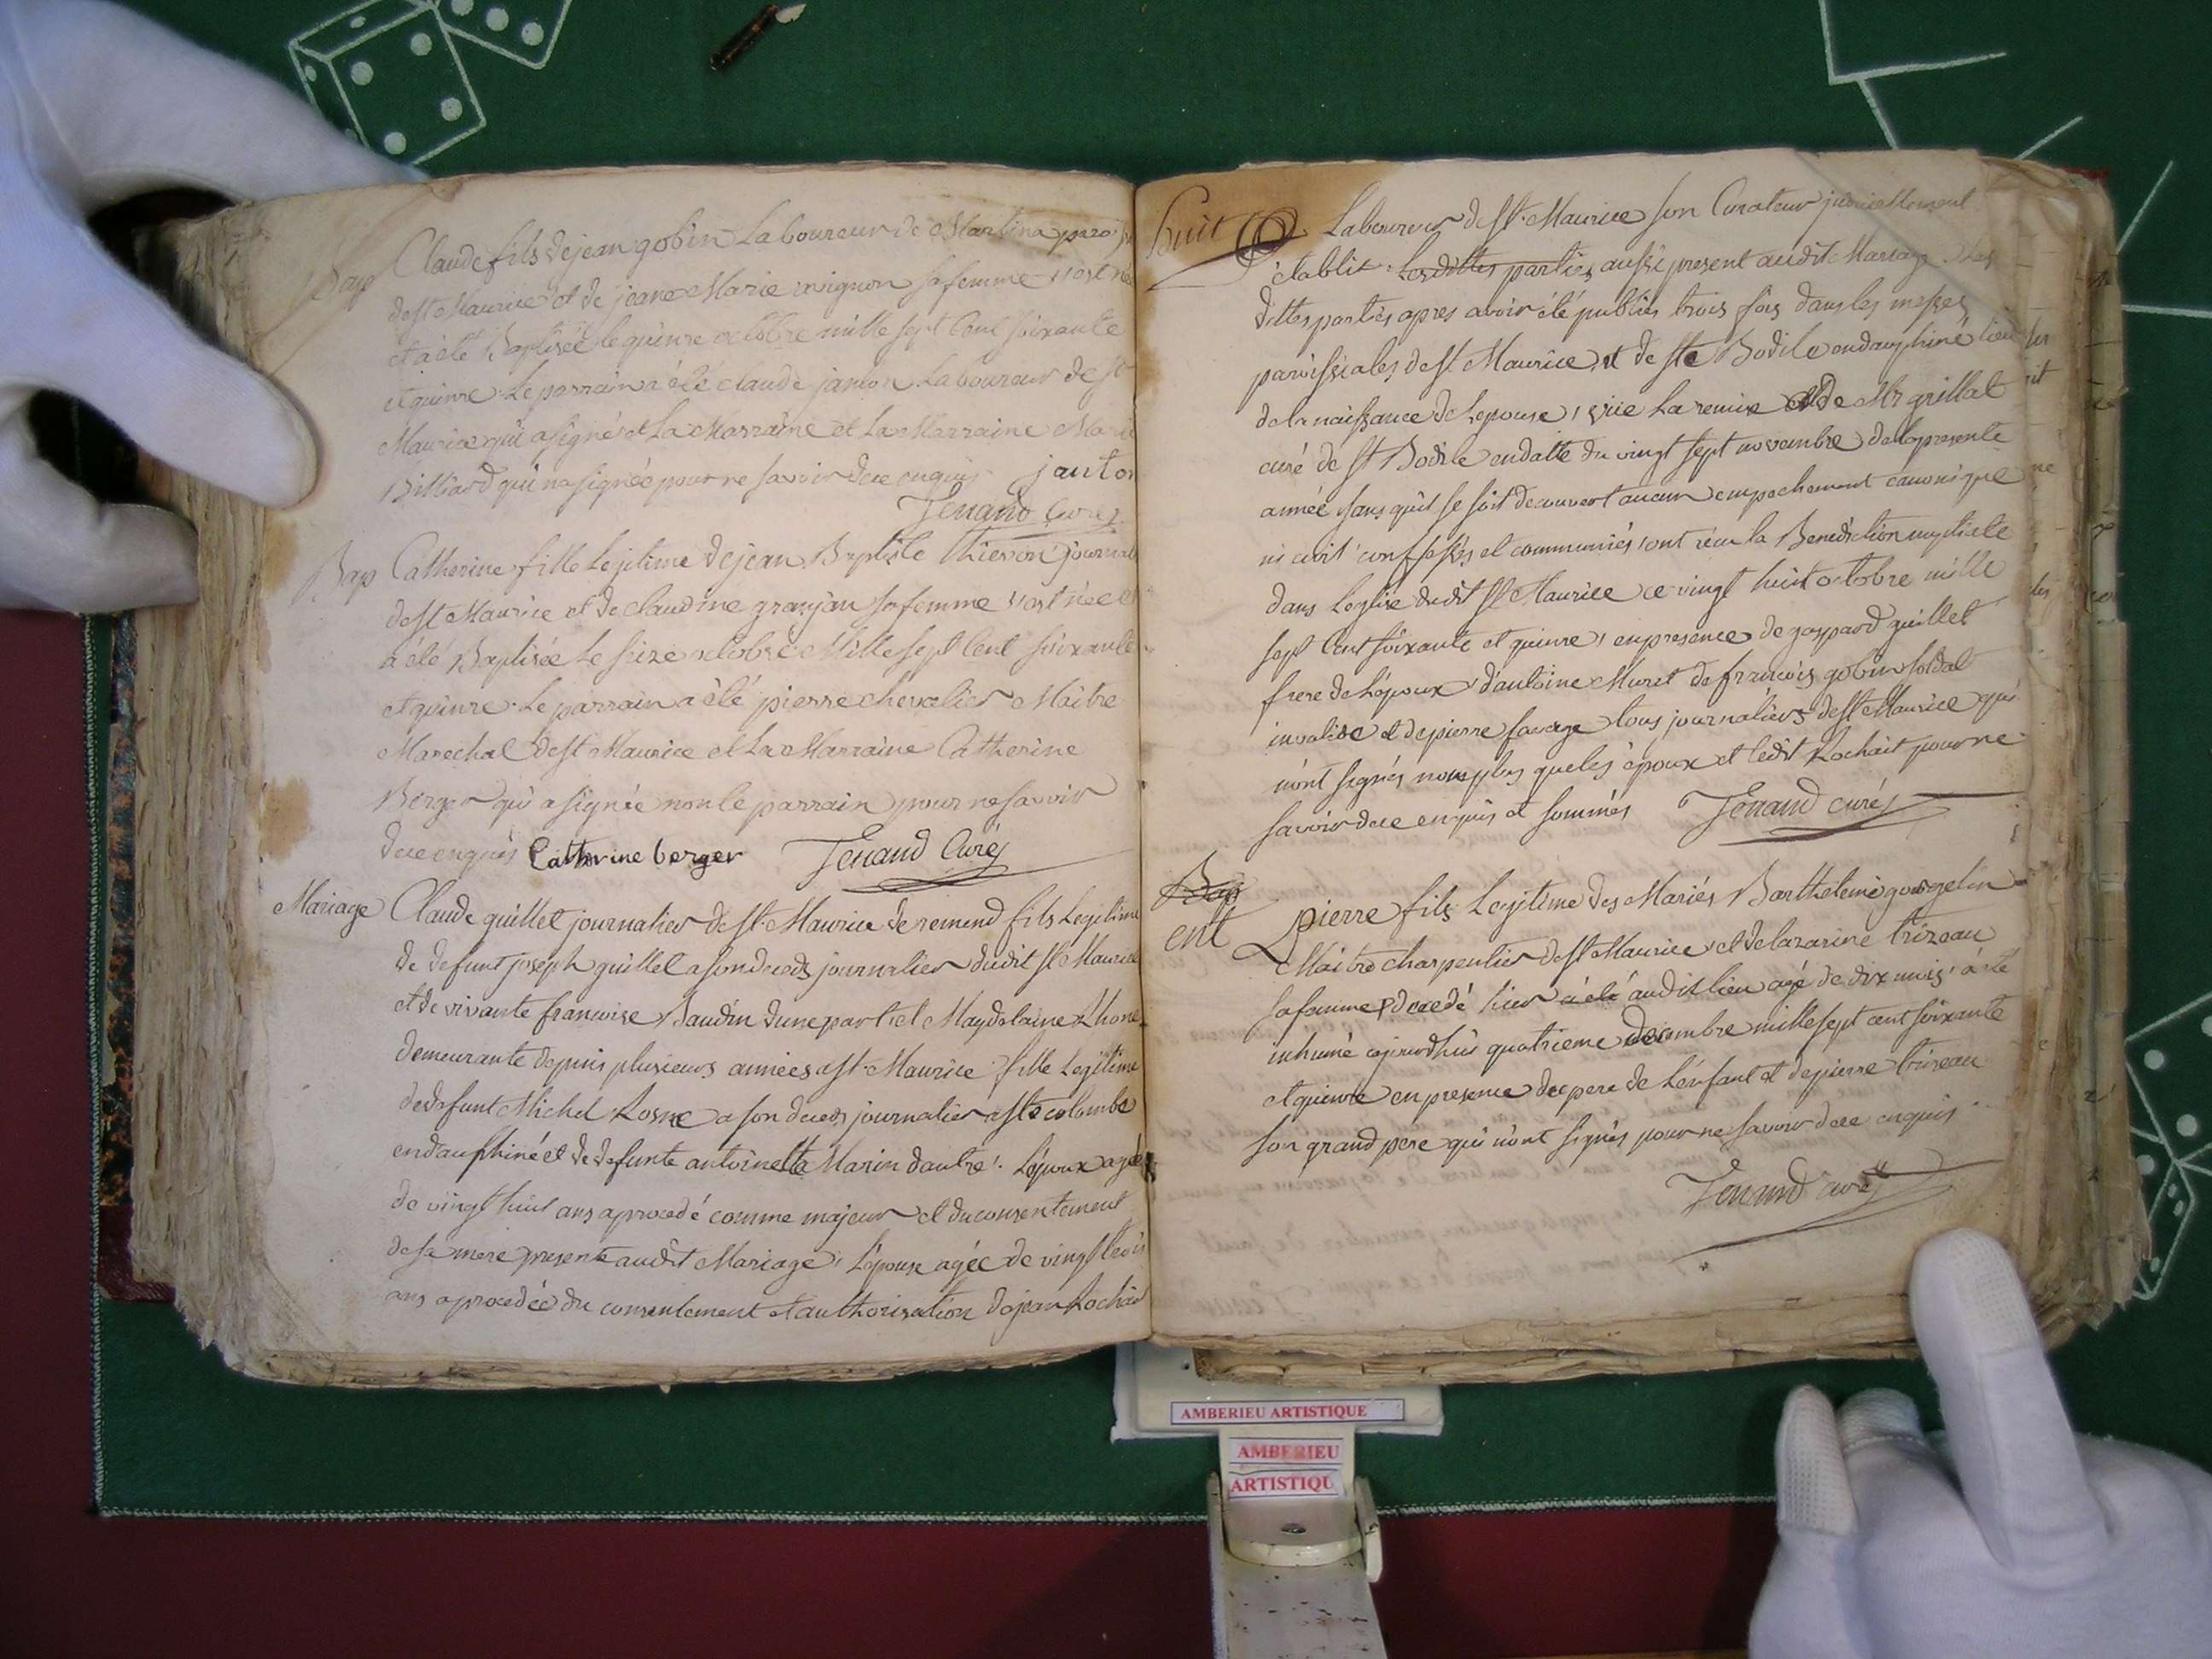 Bap Claude fils de jean gobin Laboureur de Martina parois
de st Maurice et de jeane Marie mignon sa femme est né
et a été Baptisée le quinze octobre mille sept Cent soixante
et quinze. Le parrain a été claude janton Laboureur de st
Maurice qui a signé et La Marraine et La Marraine Marie
Billiard qui na signée pour ne savoir de ce enquis janton
Tenand Curé
Bap Catherine fille Legitime de jean Baptiste thievon journal
de st Maurice et de claudine granjan sa femme est née et
a été Baptisée Le seize octobre Mille sept Cent soixante
et quinze. Le parrain a été pierre chevalier Maitre
Marechal de st Maurice et La Marraine Catherine
Berger qui a signée non le parrain pour ne savoir
de ce enquis Catherine berger Tenand Curé
Mariage Claude guillet journalier de st. Maurice de remend fils Legitime
de defunt joseph guillet a son deceds journalier dudit st Maurice
et de vivante francoise Baudin dune part et Magdelaine Rhone
demeurante depuis plusieurs années a st. Maurice fille Legitime
de defunt Michel Rosne a son deceds journalier a ste colombe
en dauphiné et de defunte antoinette Marin dautre. Lépoux agé
de vingt huit ans a procedé comme majeur et du consentement
de sa mere presente audit Mariage, Lépouse agée de vingt trois
ans a procedée du consentement et authorisation de jean Rochait
huit Laboureur de st. Maurice son Curateur judiciellement
établit. Lesdittes parties aussi present audit Mariage. Les
dittes parties apres avoir été publiés trois fois dans les messes
paroissiales de st Maurice et de ste Bodile en dauphiné lieu
de la naissance de Lepouse, vüe La remise de Mr grillat
curé de st Bodile en datte du vingt sept novembre de la presente
année sans quil se soit decouvert aucun empechement canonique
ni civil confessés et communiés ont recu la Benediction nuptiale
dans Leglise dudit st Maurice ce vingt huit octobre mille
sept Cent soixante et quinze, en presence de gaspard guillet
frere de Lépoux d'antoine Muret de francois gobin soldat
invalide et de pierre favage tous journaliers de st Maurice qui
n'ont signés non plus que les époux et ledit Rochait pour ne
savoir de ce enquis et sommés Tenand curé
Bap
ent pierre fils Legitime des Mariés Barthelemi gourgelin
Maitre charpentier de st Maurice et de lazarine trizeau
sa femme decedé hier a été audit lieu agé de dix mois, a été
inhumé aujourdhui quatrieme decembre mille sept cent soixante
et quinze en presence du pere de Lenfant et de pierre trizeau
son grand pere qui n'ont signés pour ne savoir de ce enquis
Tenand curé
AMBERIEU ARTISTIQUE
AMBERIEU
ARTISTIQU